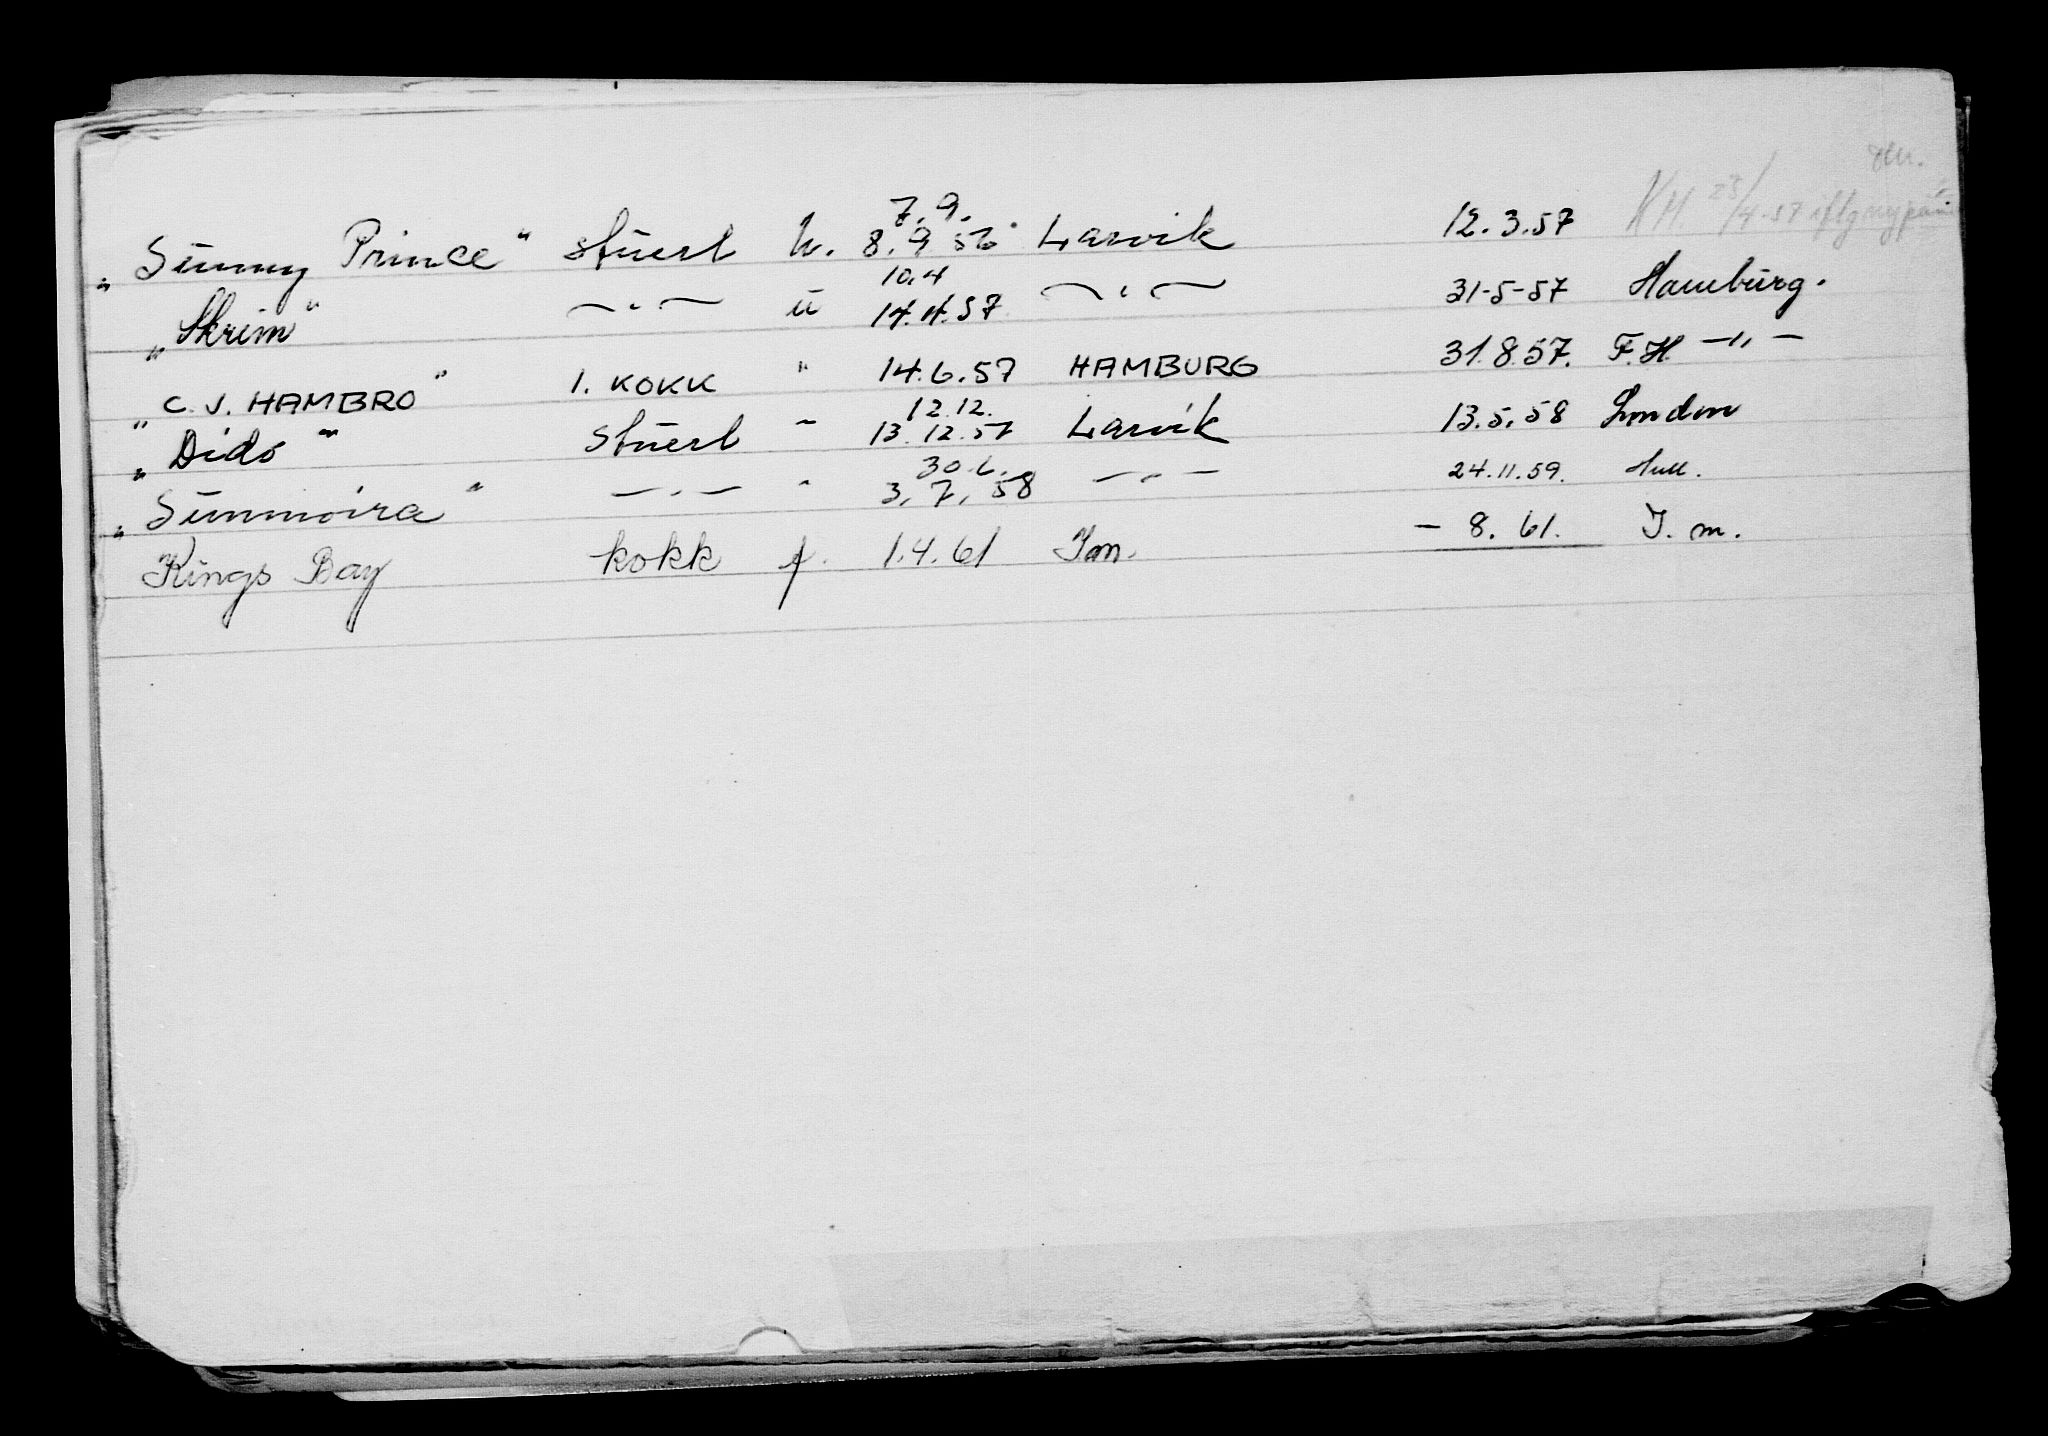 7.9.
„Sunny Prince" stuert u. 8.9 56 Larvik 12.3.57 KM 23/4-57 iflg ny
10.4
„Skrim" —"— u 14.4.57 —"— 31-5-57 Hamburg.
„C. J. HAMBRO" 1. KOKK " 14.6.57 HAMBURG 31.8.57. F.H —"—
12.12.
„Dido" stuert " 13.12.57 Larvik 13.5.58 London
30.6.
„Sunmoira" —"— " 3.7.58 —"— 24.11.59. Hull.
Kings Bay kokk f. 1.4.61 Im. — 8. 61. I. m.